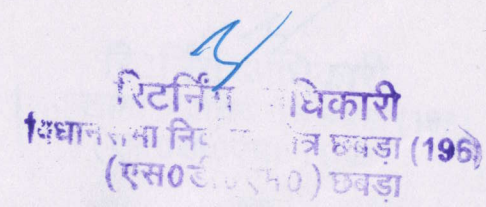 रिटर्निंग अधिकारी
विधानसभा निर्वाचन क्षेत्र छबड़ा (196)
(एस0डी0एम0) छबड़ा